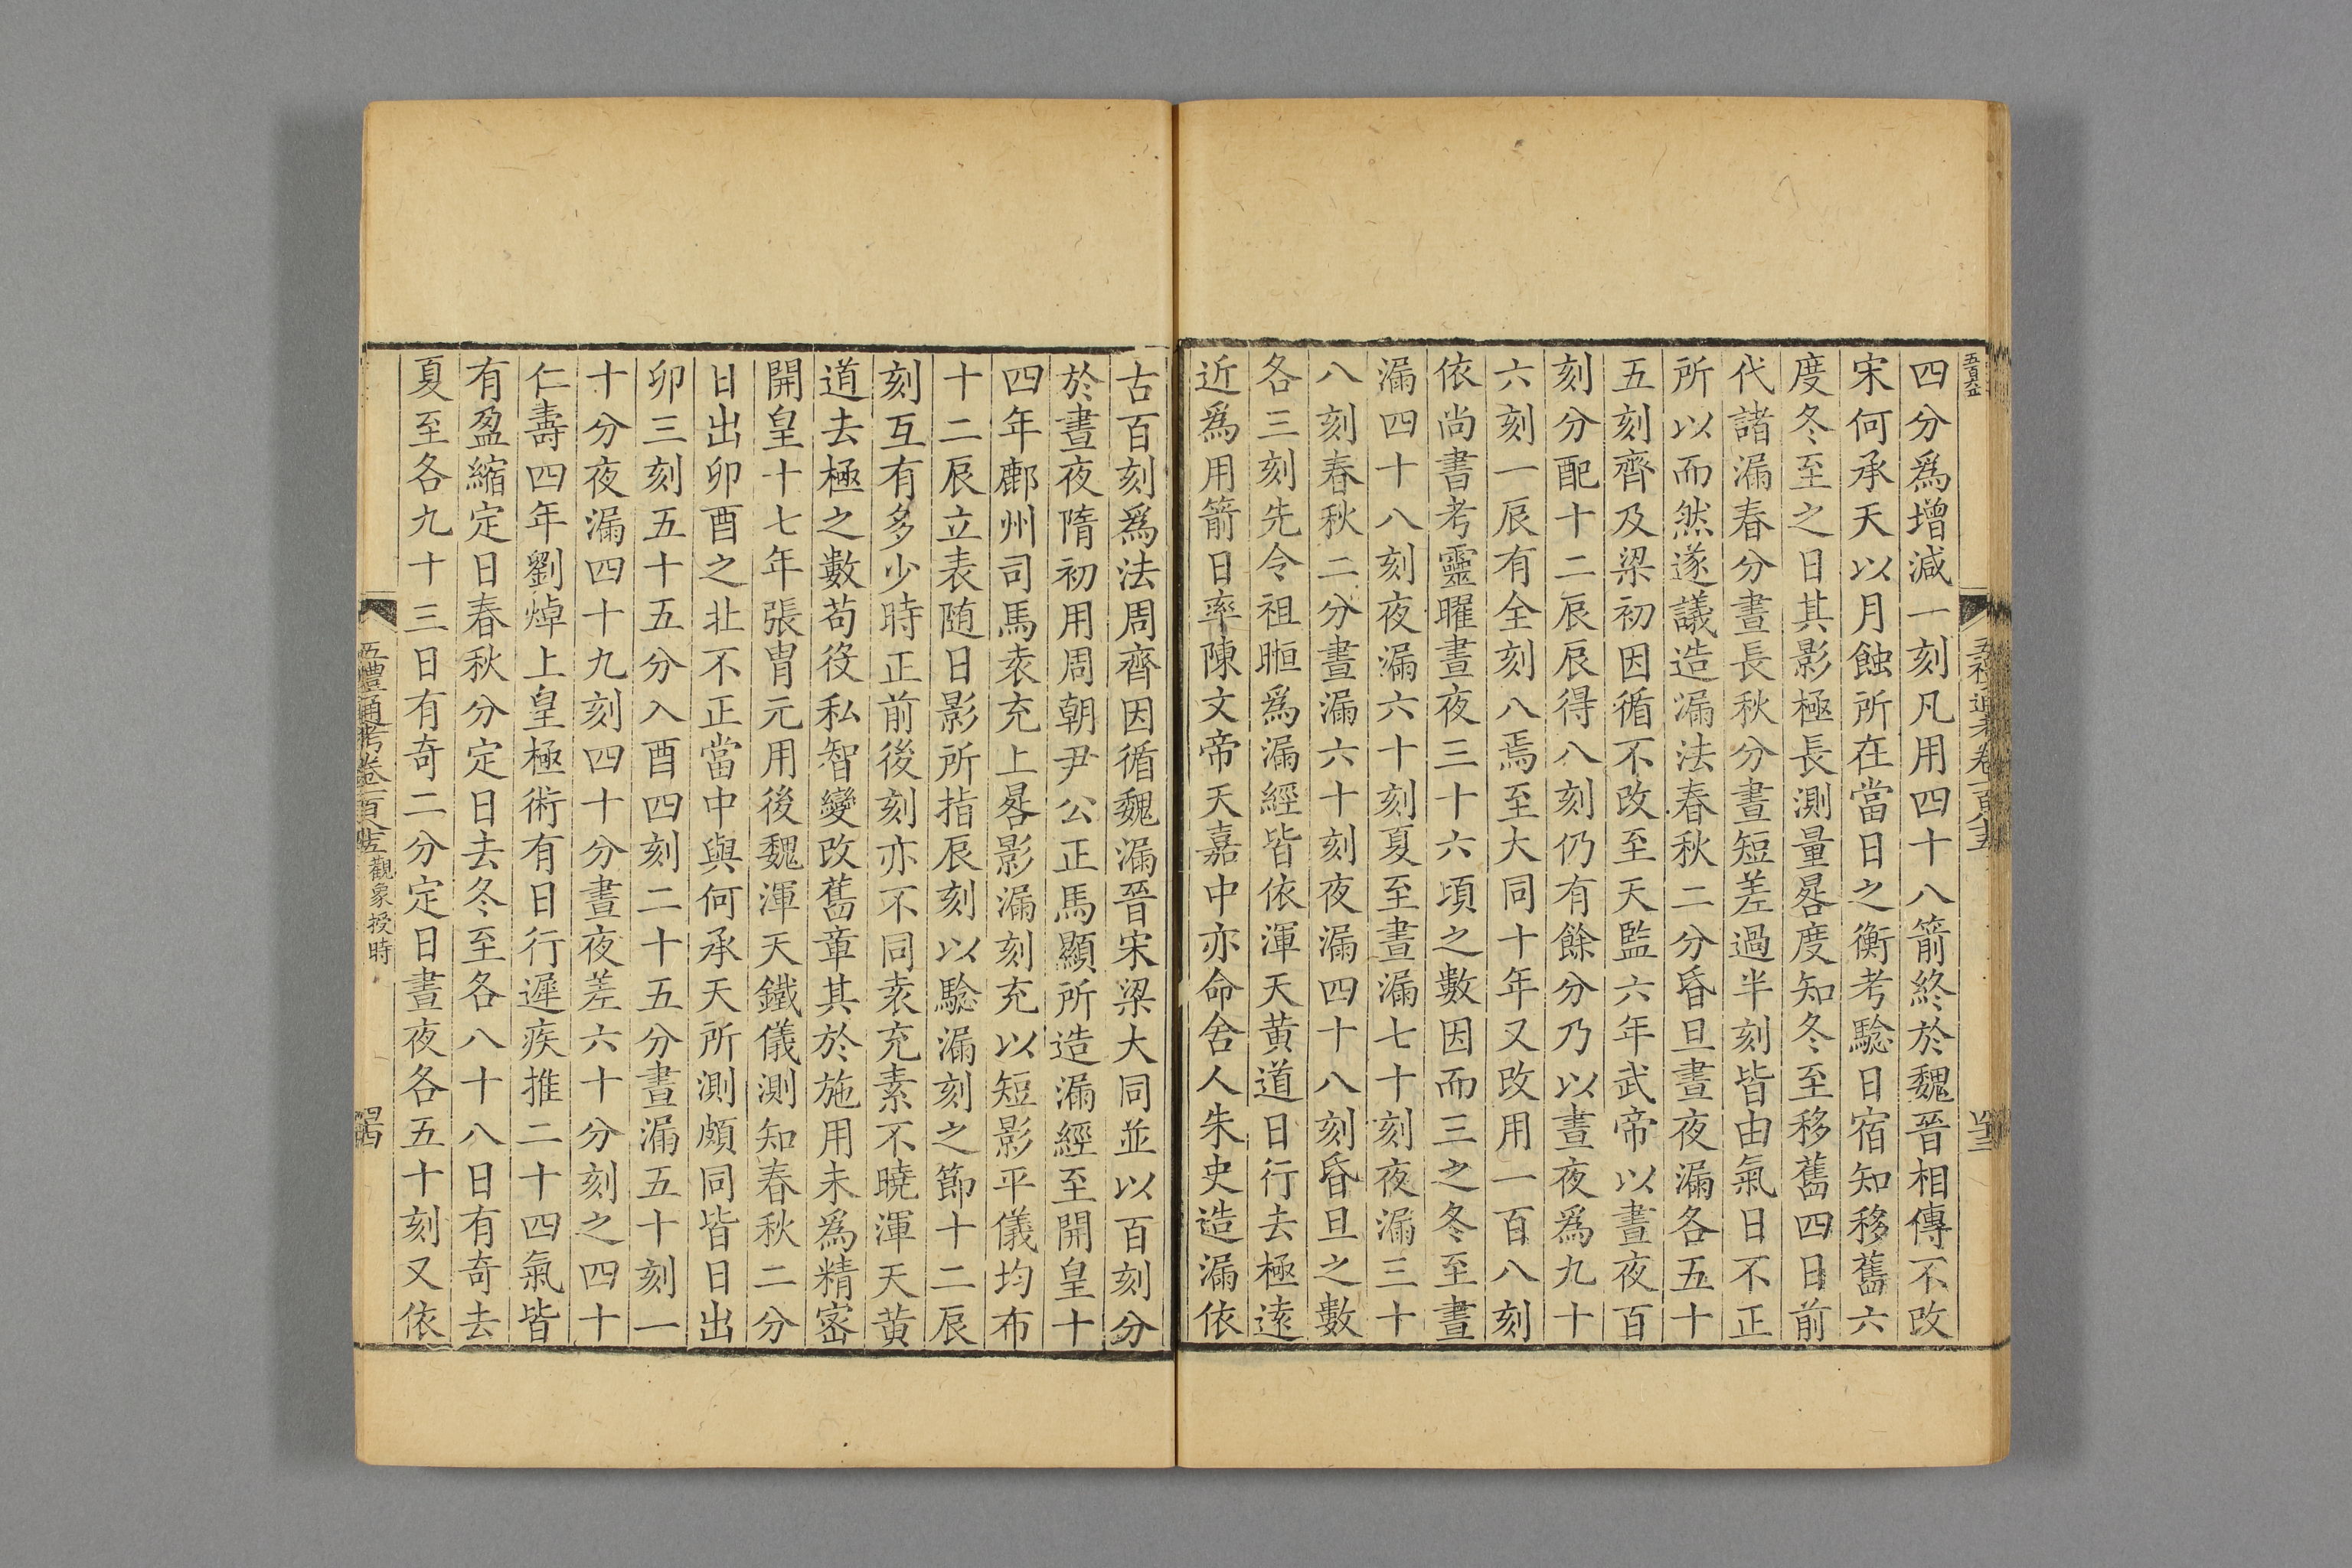 四分爲增減一刻凡用四十八箭終於魏晉相傳不改
宋何承天以月蝕所在當日之衡考騐日宿知移舊六
度冬至之日其影極長測量晷度知冬至移舊四日前
代諸漏春分晝長秋分晝短差過半刻皆由氣日不正
所以而然遂議造漏法春秋二分昏旦晝夜漏各五十
五刻齊及梁初因循不改至天監六年武帝以晝夜百
刻分配十二辰辰得八刻仍有餘分乃以晝夜爲九十
六刻一辰有全刻八焉至大同十年又改用一百八刻
依尚書考靈曜晝夜三十六頃之數因而三之冬至晝
漏四十八刻夜漏六十刻夏至晝漏七十刻夜漏三十
八刻春秋二分晝漏六十刻夜漏四十八刻昏旦之數
各三刻先令祖暅爲漏經皆依渾天黄道日行去極逺
近爲用箭日率陳文帝天嘉中亦命舍人朱史造漏依
古百刻爲法周齊因循魏漏晉宋梁大同並以百刻分
於晝夜隋初用周朝尹公正馬顯所造漏經至開皇十
四年鄜州司馬袁充上晷影漏刻充以短影平儀均布
十二辰立表随日影所指辰刻以騐漏刻之節十二辰
刻互有多少時正前後刻亦不同袁充素不曉渾天黄
道去極之數苟役私智變改舊章其於施用未爲精宻
開皇十七年張胄元用後魏渾天鐵儀測知春秋二分
日出卯酉之北不正當中與何承天所測頗同皆日出
卯三刻五十五分入酉四刻二十五分晝漏五十刻一
十分夜漏四十九刻四十分晝夜差六十分刻之四十
仁壽四年劉焯上皇極術有日行遲疾推二十四氣皆
有盈縮定日春秋分定日去冬至各八十八日有奇去
夏至各九十三日有奇二分定日晝夜各五十刻又依
五禮通考卷一百八十五 觀象授時